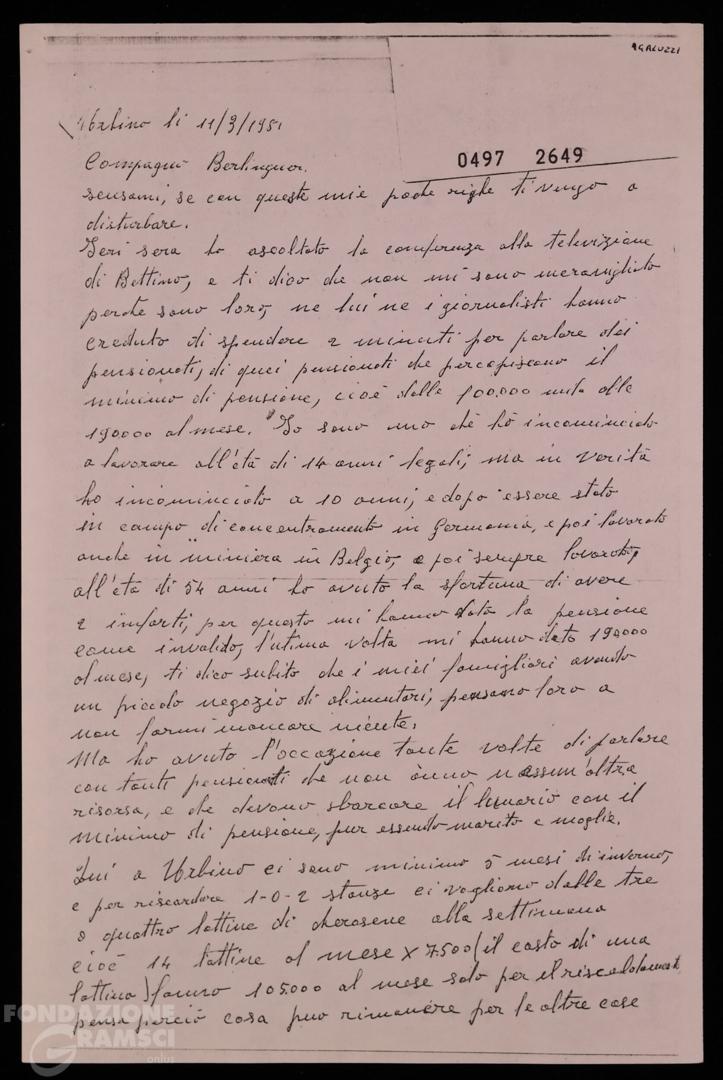 AGALUZZI
Urbino li 11/3/1981
0497 2649
Compagno Berlinguer.
scusami, se con queste mie poche righe ti vengo a
disturbare.
Ieri sera ho ascoltato la conferenza alla televizione
di Bettino, e ti dico che non mi sono meravigliato
perche sono loro, ne lui ne i giornalisti hanno
creduto di spendere 2 minuti per parlare dei
pensionati, di quei pensionati che percepiscano il
minimo di pensione, cioè dalle 100.000 mila alle
190000 al mese. Io sono uno chè hò incominciato
a lavorare all'età di 14 anni legali, ma in verità
ho incominciato a 10 anni, e dopo essere stato
in campo di concentramento in Germania, e poi lavorato
anche in miniera in Belgio, e poi sempre lavorato,
all'età di 54 anni ho avuto la sfortuna di avere
2 infarti, per questo mi hanno dato la pensione
come invalido, l'utima volta mi hanno dato 190000
al mese, ti dico subito che i miei famigliari avendo
un piccolo negozio di alimentari, pensano loro a
non farmi mancare niente.
Ma ho avuto l'occazione tante volte di parlare
con tanti pensionati che non ànno nessun'altra
risorsa, e che devono sbarcare il lunario con il
minimo di pensione, pur essendo marito e moglie.
Qui a Urbino ci sono minimo 5 mesi di inverno,
e per riscardare 1-0-2 stanze ci vogliono dalle tre
o quattro lattine di cherosene alla settimana
cioè 14 lattine al mese x 7.500 (il costo di una
lattina) fanno 105.000 al mese solo per il riscaldamento
pensa perciò cosa puo rimanere per le altre cose
FONDAZIONE
GRAMSCI
onlus